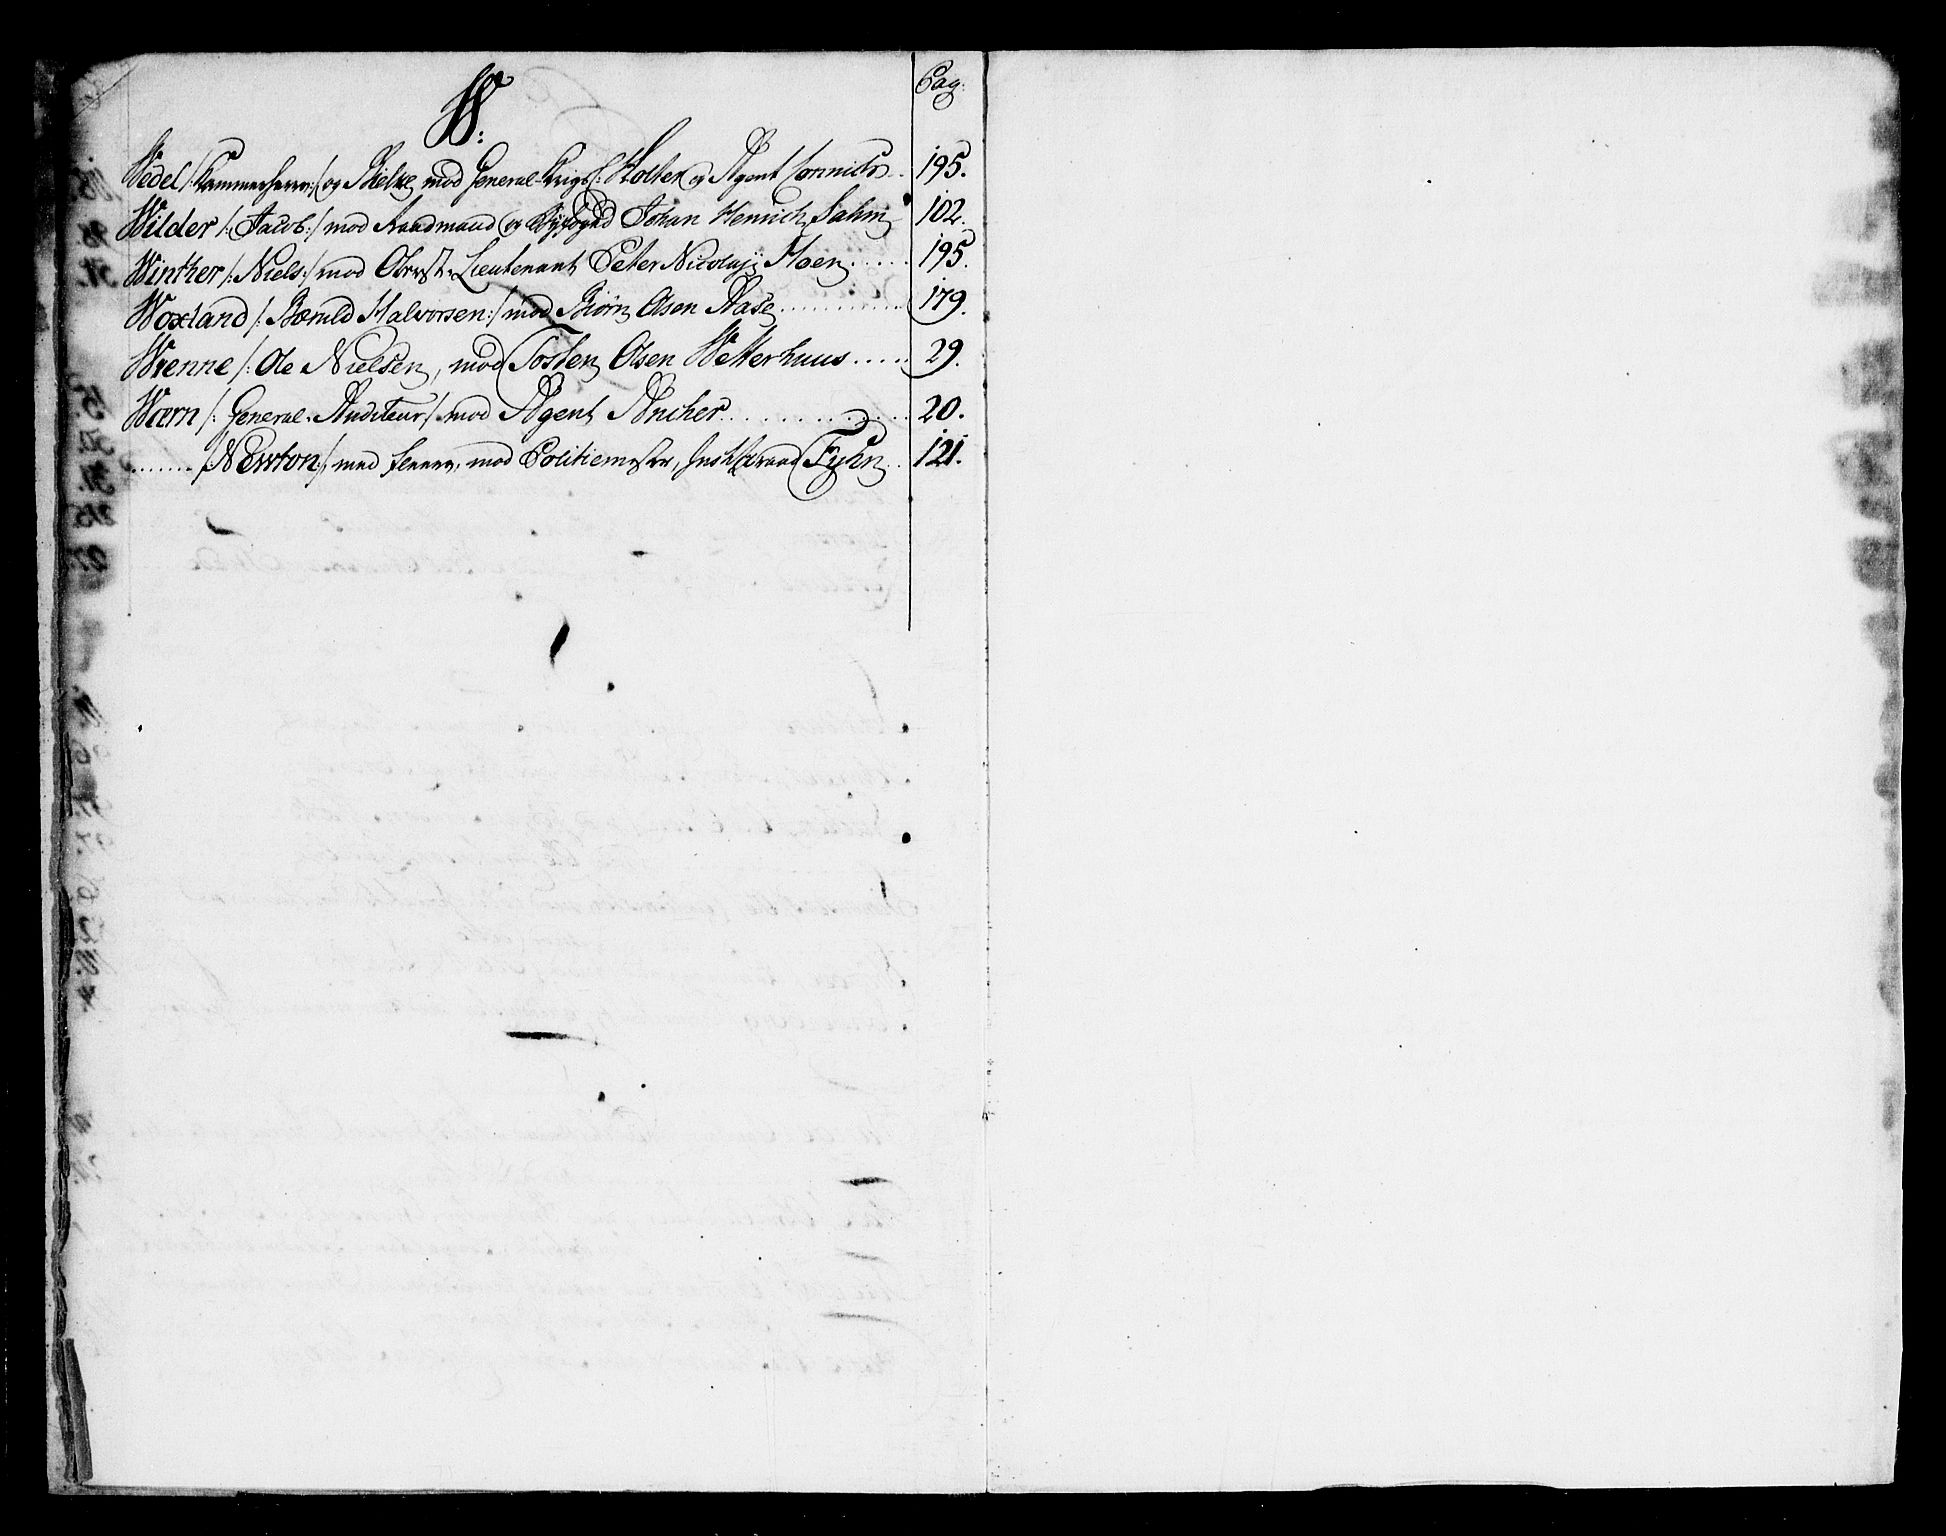 W:
Pag:
Wedel /: Kammerherre :/ og Bielke mod General-Krigs C: Holter og Agent 195.
Wilder /: Jacob :/ mod Raadmand og Byefoged Johan Henrich Sahm 102.
Winther /: Niels :/ mod Oberst-Lieutenant Peter Nicolaj Moen ..... 195.
Woxland /: Bæruld Halvorsen :/ mod Biørn Olsen Aase ............ 179.
Wrenne /: Ole Nielsen, mod Tosten Olsen Wetterhuus ..... 29.
Wærn /: General-Auditeur / mod Agent Ancher .............. 20.
....... /: Newton :/ med fleere, mod Politiemester, Justitzraad Fyhn .. 121.